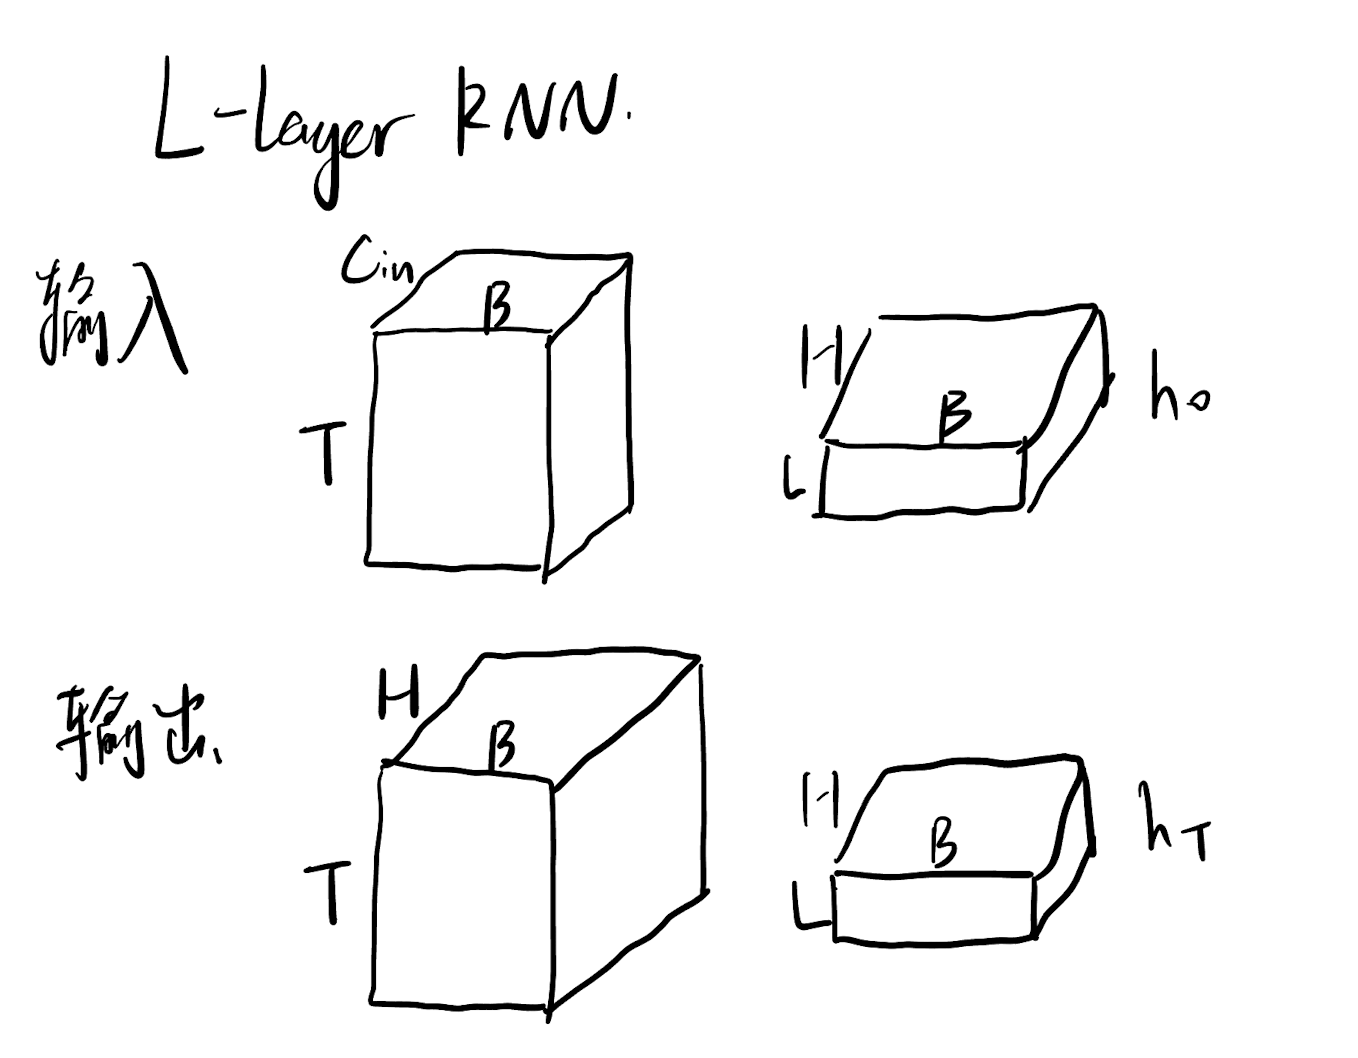 L-layer RNN.
输入
Cin
B
T
H
B
L
h0
输出
H
B
T
H
B
L
hT